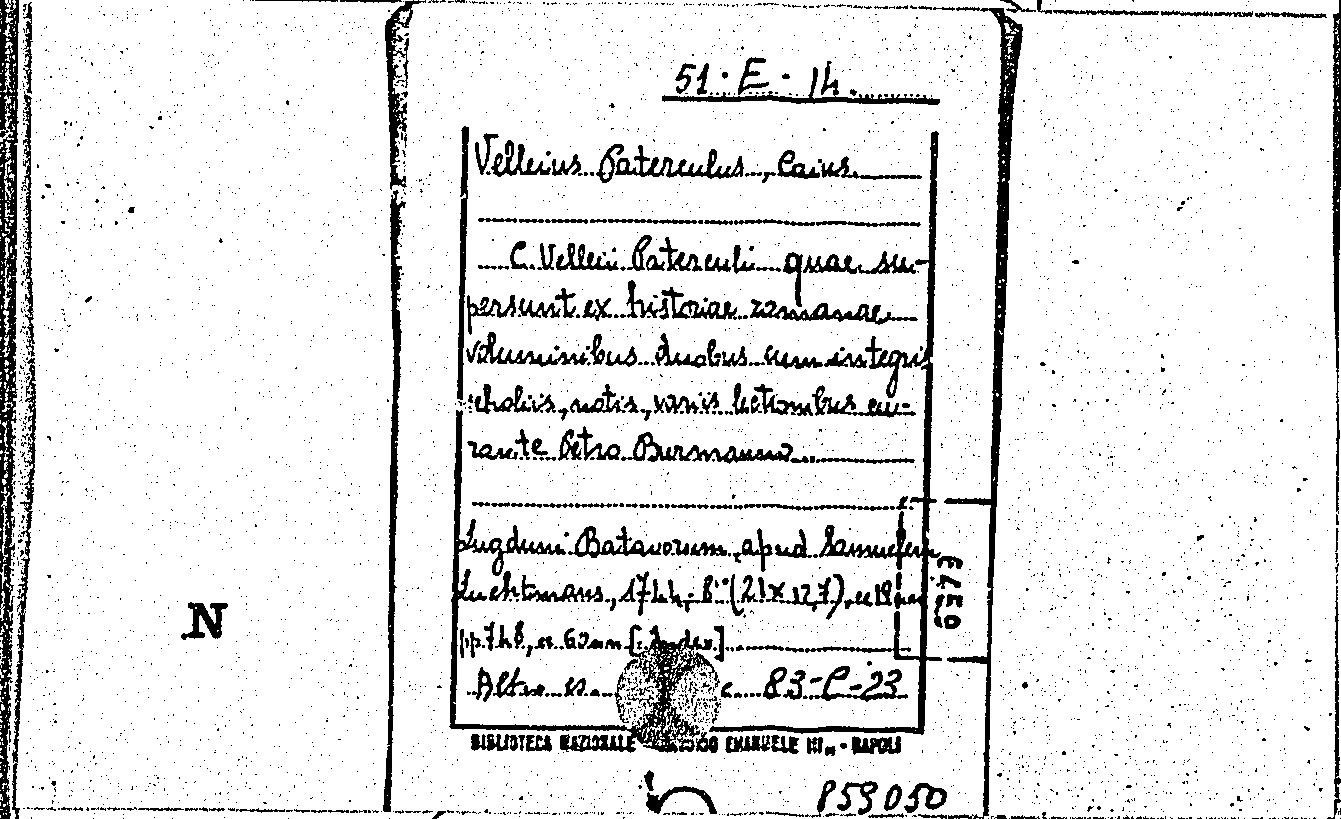 51·E·14.
Velleius Paterculus, Caius.
C. Vellei Paterculi quae su-
persunt ex historiae romanae
voluminibus duobus cum integris
scholiis, notis, variis lectionibus cu-
rante Petro Burmanno
Lugduni Batavorum, apud Samuelem
Luchtmans, 1744; 8° (21x12,7), cc 18 nn
pp 748, cc 62 nn [: Index]
Altro es. 83-C-23
BIBLIOTECA NAZIONALE EMANUELE III - NAPOLI
N
859050